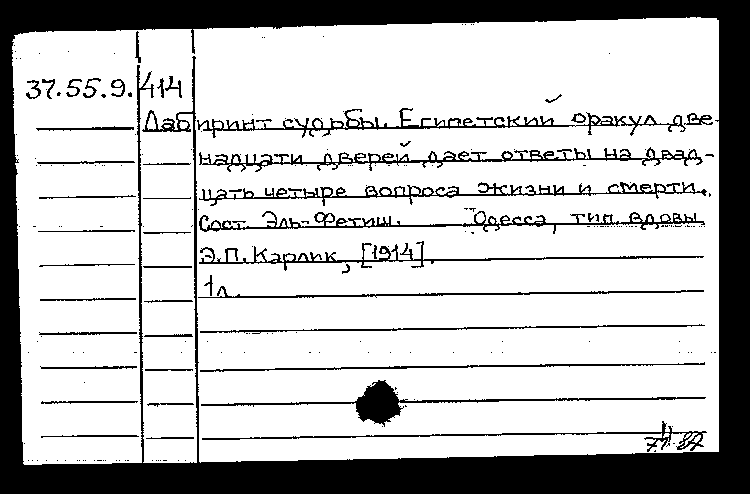 37.55.9. 414
Лабиринт судьбы. Египетский оракул две-
надцати дверей дает ответы на двад-
цать четыре вопроса жизни и смерти.
Сост. Эль-Фетиш. Одесса, тип. вдовы
Э.П. Карлик, [1914].
1 л.